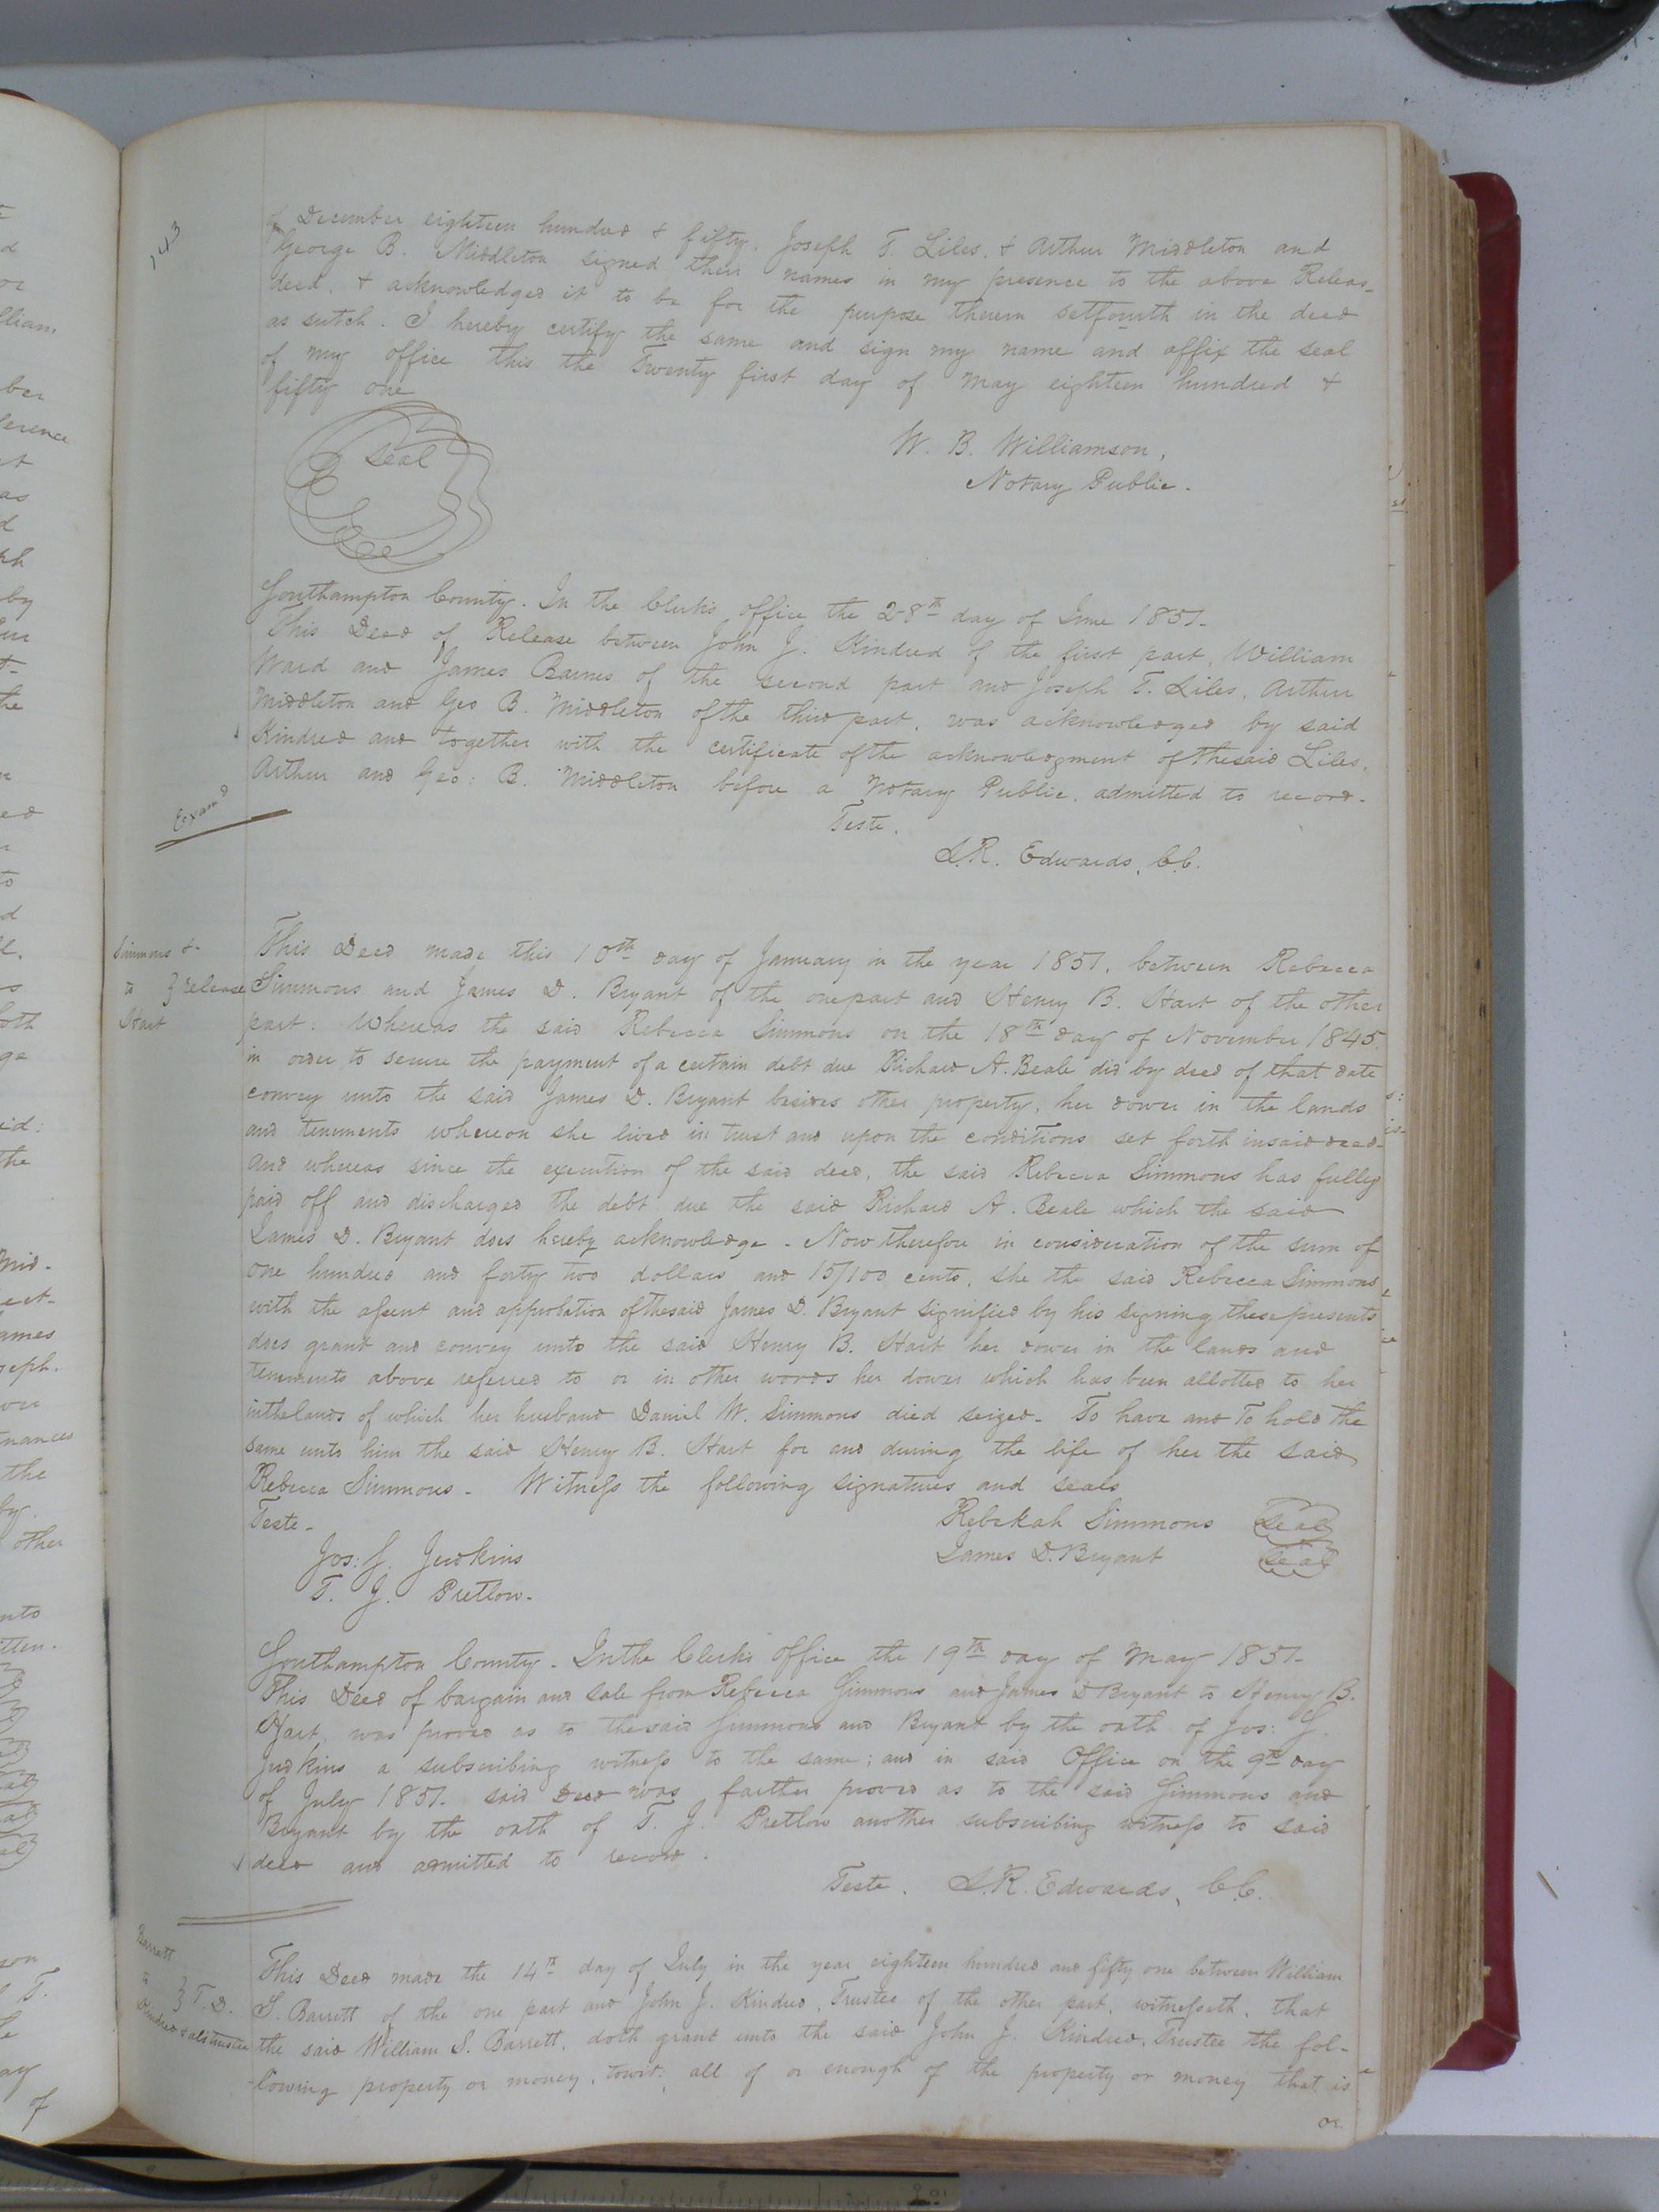 143
of December eighteen hundred & fifty. Joseph T. Liles, & Arthur Middleton and
George B. Middleton signed their names in my presence to the above Releas-
deed, & acknowledged it to be for the purpose therein setfourth in the deed
as sutch. I hereby certify the same and sign my name and affix the seal
of my office this the Twenty first day of May eighteen hundred &
fifty one
Seal
W. B. Williamson,
Notary Public.
Southampton County. In the Clerk's office the 28th day of June 1851.
This Deed of Release between John J. Kindred of the first part, William
Ward and James Barnes of the second part and Joseph T. Liles, Arthur
Middleton and Geo B. Middleton of the third part, was acknowledged by said
Kindred and together with the certificate of the acknowledgment of the said Liles,
Arthur and Geo: B. Middleton before a Notary Public, admitted to record.
Teste.
L.R. Edwards, C.C.
Examd
Simmons &
to } release
Hart
This Deed made this 10th day of January in the year 1851, between Rebecca
Simmons and James D. Bryant of the one part and Henry B. Hart of the other
part: Whereas the said Rebecca Simmons on the 18th day of November 1845
in order to secure the payment of a certain debt due Richard A. Beale did by deed of that date
convey unto the said James D. Bryant besides other property, her dower in the lands
and tenements whereon she lived in trust and upon the conditions set forth in said deed-
And whereas since the execution of the said deed, the said Rebecca Simmons has fully
paid off and discharged the debt due the said Richard A. Beale which the said
James D. Bryant does hereby acknowledge. Now therefore in consideration of the sum of
one hundred and forty two dollars and 15/100 cents, she the said Rebecca Simmons
with the assent and approbation of the said James D. Bryant signified by his signing these presents
does grant and convey unto the said Henry B. Hart her dower in the lands and
tenements above referred to or in other words her dower which has been allotted to her
in the lands of which her husband Daniel W. Simmons died seized. To have and To hold the
same unto him the said Henry B. Hart for and during the life of her the said
Rebecca Simmons. Witness the following signatures and seals
Teste. Rebekah Simmons Seal
Jos: G. Judkins James D. Bryant Seal
T. J. Pretlow.
Southampton County. In the Clerk's Office the 19th day of May 1851.
This Deed of bargain and sale from Rebecca Simmons and James D Bryant to Henry B.
Hart, was proved as to the said Simmons and Bryant by the oath of Jos: G.
Judkins a subscribing witness to the same; and in said Office on the 9th day
of July 1851. said Deed was farther proved as to the said Simmons and
Bryant by the oath of T. J. Pretlow another subscribing witness to said
deed and admitted to record.
Teste. L.R. Edwards, C.C.
Barrett
to } T.D.
Kindred & als trustee
This Deed made the 14th day of July in the year eighteen hundred and fifty one between William
S. Barrett of the one part and John J. Kindred, Trustee of the other part, witnesseth, that
the said William S. Barrett, doth grant unto the said John J. Kindred, Trustee the fol-
-lowing property or money, towit: all of or enough of the property or money that is
or